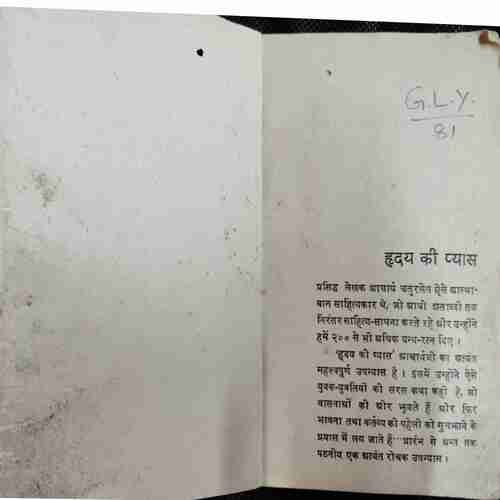 G.L.Y.
81
हृदय की प्यास
प्रसिद्ध लेखक आचार्य चतुरसेन ऐसे आस्था-
वान साहित्यकार थे, जो आधी शताब्दी तक
निरंतर साहित्य-साधना करते रहे और उन्होंने
हमें २०० से भी अधिक ग्रन्थ-रत्न दिए ।
'हृदय की प्यास' आचार्यश्री का अत्यंत
महत्वपूर्ण उपन्यास है । इसमें उन्होंने ऐसे
युवक-युवतियों की सरस कथा कही है, जो
वासनाओं की ओर झुकते हैं और फिर
भावना तथा कर्तव्य की पहेली को सुलझाने के
प्रयास में लग जाते हैं··· प्रारंभ से अन्त तक
पठनीय एक अत्यंत रोचक उपन्यास ।